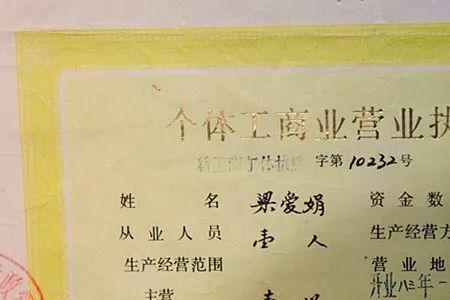 个体工商业营业执
字第10232号
姓 名 梁爱娟 资金数
从业人员 壹人 生产经营方
生产经营范围 营业地
主营 开业八三年一